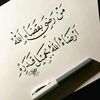 من رضي بقضاء الله
أرضاه الله بجميل قدره